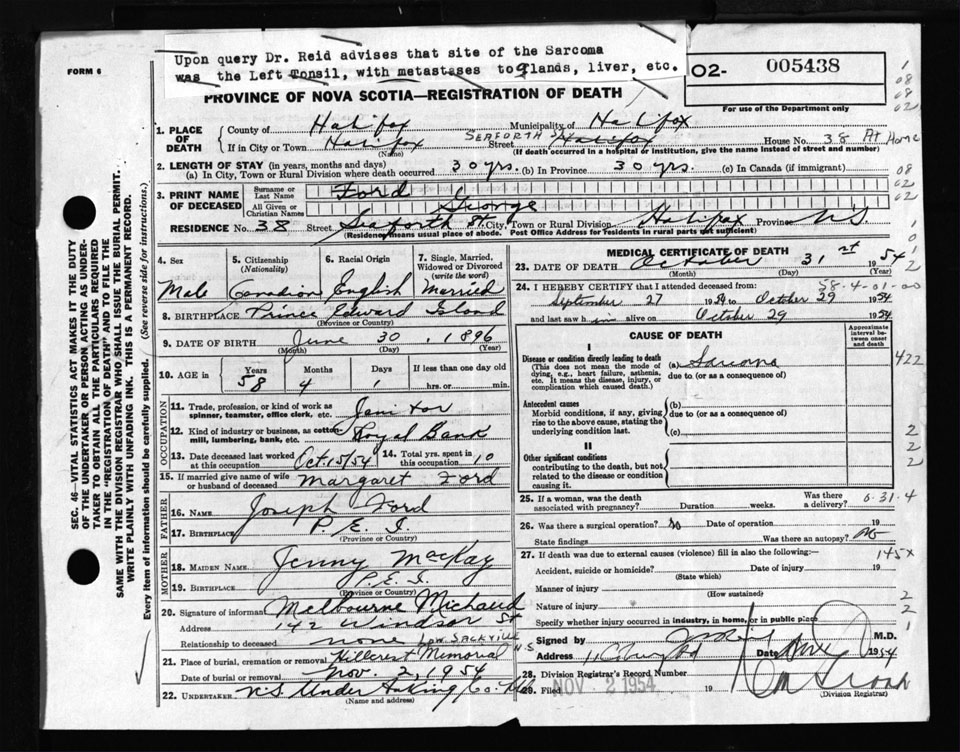 FORM 6
Upon query Dr. Reid advises that site of the Sarcoma
was the Left Tonsil, with metastases to glands, liver, etc.
O2- 005438
For use of the Department only
PROVINCE OF NOVA SCOTIA—REGISTRATION OF DEATH
1. PLACE OF DEATH
County of Halifax Municipality of Halifax
If in City or Town Halifax Street SEAFORTH ST House No. 38 At Home
(Name) (If death occurred in a hospital or institution, give the name instead of street and number)
2. LENGTH OF STAY (in years, months and days)
(a) In City, Town or Rural Division where death occurred 30 yrs. (b) In Province 30 yrs. (c) In Canada (if immigrant)
3. PRINT NAME OF DECEASED
Surname or Last Name Ford
All Given or Christian Names George
RESIDENCE No. 38 Street Seaforth St. City, Town or Rural Division Halifax Province N.S.
(Residence means usual place of abode. Post Office Address for residents in rural parts not sufficient)
4. Sex
Male
5. Citizenship (Nationality)
Canadian
6. Racial Origin
English
7. Single, Married, Widowed or Divorced (write the word)
Married
8. BIRTHPLACE Prince Edward Island
(Province or Country)
9. DATE OF BIRTH June 30, 1896
(Month) (Day) (Year)
10. AGE in
Years Months Days If less than one day old
58 4 1 hrs. or min.
OCCUPATION
11. Trade, profession or kind of work as spinner, teamster, office clerk, etc. Janitor
12. Kind of industry or business, as cotton mill, lumbering, bank, etc. Royal Bank
13. Date deceased last worked at this occupation Oct. 15/54
14. Total yrs. spent in this occupation 10
15. If married give name of wife or husband of deceased Margaret Ford
FATHER
16. NAME Joseph Ford
17. BIRTHPLACE P.E.I.
(Province or Country)
MOTHER
18. MAIDEN NAME Jenny MacKay
19. BIRTHPLACE P.E.I.
(Province or Country)
20. Signature of informant Melbourne Michaud
Address 142 Windsor St
Relationship to deceased none
21. Place of burial, cremation or removal Hillcrest Memorial LOW. SACKVILLE N.S.
Date of burial or removal Nov. 2, 1954
22. UNDERTAKER N.S. Undertaking Co. Ltd
(Name and address)
MEDICAL CERTIFICATE OF DEATH
23. DATE OF DEATH October 31st 1954
(Month) (Day) (Year)
24. I HEREBY CERTIFY that I attended deceased from: 58-4-01-00
September 27 1954 to October 29 1954
and last saw him alive on October 29 1954
CAUSE OF DEATH
Approximate interval between onset and death
I
Disease or condition directly leading to death (a) Sarcoma
(This does not mean the mode of dying, e.g., heart failure, asthenia, etc. It means the disease, injury, or complication which caused death.)
due to (or as a consequence of)
Antecedent causes
Morbid conditions, if any, giving rise to the above cause, stating the underlying condition last.
(b)
due to (or as a consequence of)
(c)
II
Other significant conditions
contributing to the death, but not related to the disease or condition causing it.
25. If a woman, was the death associated with pregnancy? Duration weeks. Was there a delivery?
26. Was there a surgical operation? no Date of operation 19
State findings Was there an autopsy? no
27. If death was due to external causes (violence) fill in also the following:—
Accident, suicide or homicide? Date of injury 19
(State which)
Manner of injury
(How sustained)
Nature of injury
Specify whether injury occurred in industry, in home, or in public place
Signed by M.D.
Address Date 1954
28. Division Registrar's Record Number
29. Filed NOV 2 1954 19
(Division Registrar)
SEC. 46—VITAL STATISTICS ACT MAKES IT THE DUTY
OF THE UNDERTAKER OR PERSON ACTING AS UNDERTAKER TO OBTAIN ALL THE PARTICULARS REQUIRED
IN THE "REGISTRATION OF DEATH" AND TO FILE THE
SAME WITH THE DIVISION REGISTRAR WHO SHALL ISSUE THE BURIAL PERMIT.
WRITE PLAINLY WITH UNFADING INK. THIS IS A PERMANENT RECORD.
Every item of information should be carefully supplied. (See reverse side for instructions.)
422
6-31-4
145X